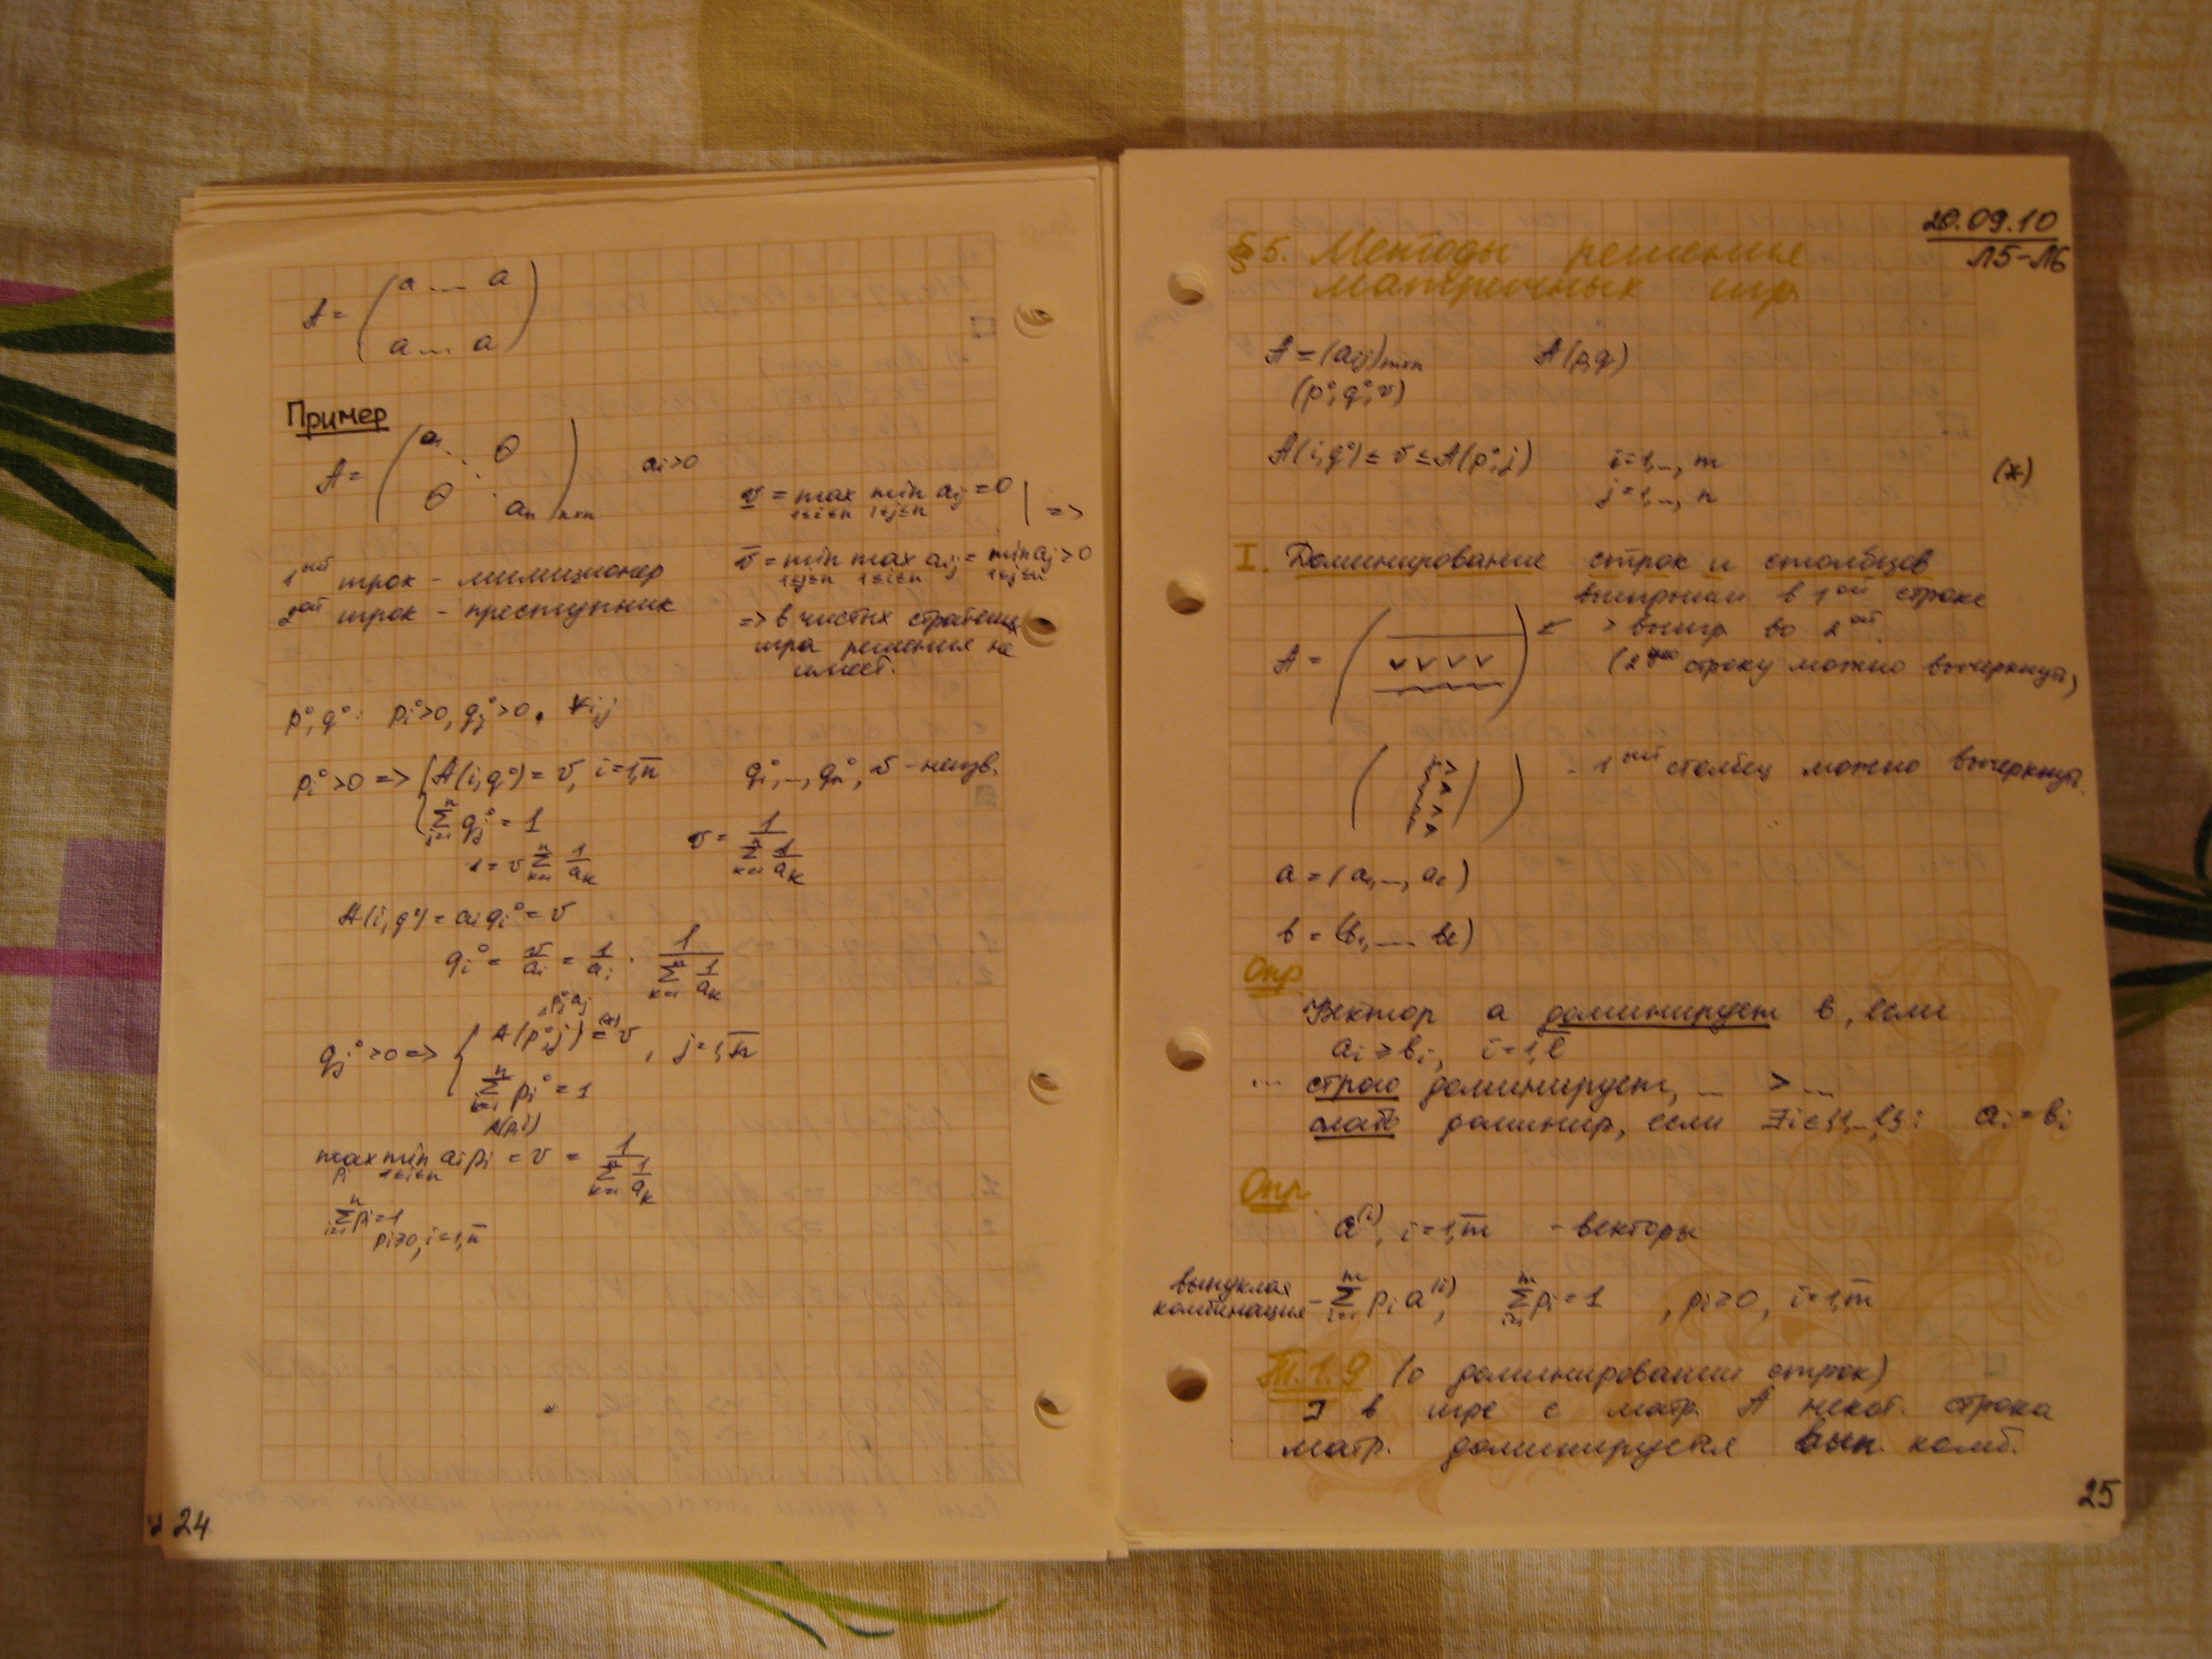 A = ( a ... a
a ... a )
Пример
A = ( a₁ ⋱ 0
0 aₙ )ₙₓₙ aᵢ>0
v̲ = max min aᵢⱼ = 0 | =>
1≤i≤n 1≤j≤n
v̄ = min max aᵢⱼ = min aⱼ > 0
1≤j≤n 1≤i≤n 1≤j≤n
1ый игрок - милиционер
2ой игрок - преступник
=> в чистых стратегиях
игра решения не
имеет.
p⁰, q⁰: pᵢ⁰>0, qⱼ⁰>0, ∀i,j
pᵢ⁰>0 => { A(i,q⁰) = v, i=1,n̄ q₁⁰,...,qₙ⁰, v - неизв.
∑ qⱼ⁰ = 1
1 = v ∑ₖ₌₁ⁿ 1/aₖ v = 1/(∑ₖ₌₁ⁿ 1/aₖ)
A(i,q⁰) = aᵢqᵢ⁰ = v
qᵢ⁰ = v/aᵢ = 1/aᵢ · 1/(∑ₖ₌₁ⁿ 1/aₖ)
pⱼ⁰aⱼ
qⱼ⁰>0 => { A(p⁰,j) (*)= v, j=1,n̄
∑ᵢ₌₁ⁿ pᵢ⁰ = 1
A(p,i)
max min aᵢpᵢ = v = 1/(∑ₖ₌₁ⁿ 1/aₖ)
pᵢ 1≤i≤n
∑ᵢ₌₁ⁿ pᵢ=1
pᵢ≥0, i=1,n̄
24
20.09.10
Л5-Л6
§5. Методы решения
матричных игр
A = (aᵢⱼ)ₘₓₙ A(p,q)
(p⁰, q⁰, v)
A(i,q⁰) ≤ v ≤ A(p⁰,j) i=1,..., m (*)
j=1,..., n
I. Доминирование строк и столбцов
выигрыши в 1ой строке
A = ( ∨∨∨∨ ) > выигр во 2ой.
(2ую строку можно вычеркнуть)
( ) - 1ый столбец можно вычеркнуть.
a = (a₁,..., aₗ)
b = (b₁,..., bₗ)
Опр
Вектор a доминирует b, если
aᵢ ≥ bᵢ, i=1,l̄
... строго доминирует, ... > ...
слабо доминир, если ∃i∈{1,..,l}: aᵢ = bᵢ
Опр
a⁽ⁱ⁾, i=1,m̄ - векторы
выпуклая
комбинация - ∑ᵢ₌₁ᵐ pᵢa⁽ⁱ⁾, ∑ᵢ₌₁ᵐ pᵢ = 1, pᵢ≥0, i=1,m̄
Т.1.9 (о доминировании строк)
] в игре с матр. A некот. строка
матр. доминируется вып. комб.
25